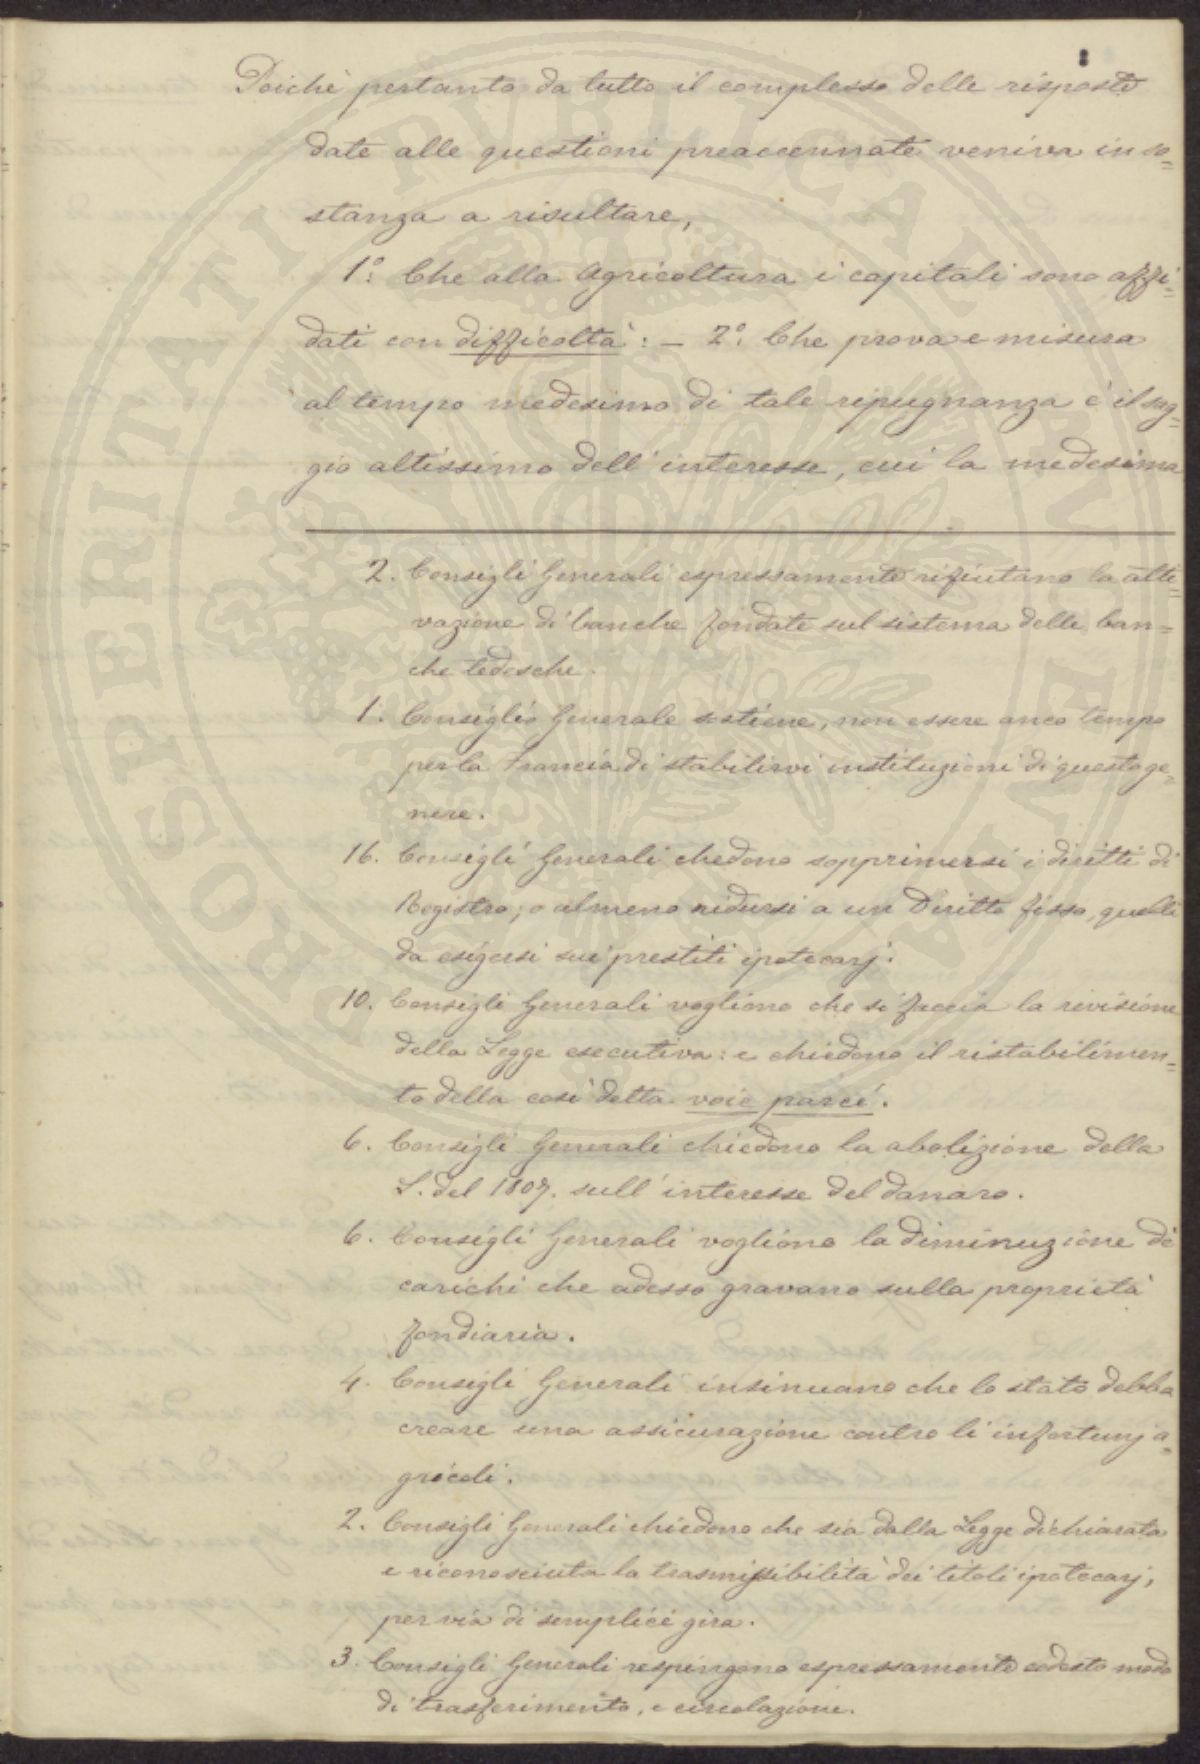 Poichè pertanto da tutto il complesso delle risposte
date alle questioni preaccennate veniva in so=
stanza a risultare,
1.° Che alla Agricoltura i capitali sono affi=
dati con difficoltà: – 2.° Che prova e misura
al tempo medesimo di tale ripugnanza è il sag=
gio altissimo dell'interesse, cui la medesima
2. Consigli Generali espressamente rifiutano la atti=
vazione di banche fondate sul sistema delle ban=
che tedesche.
1. Consiglio Generale sostiene, non essere anco tempo
per la Francia di stabilirvi instituzioni di questo ge=
nere.
16. Consigli Generali chedono sopprimersi i diritti di
Registro; o almeno ridursi a un Diritto fisso, quelli
da esigersi sui prestiti ipotecarj.
10. Consigli Generali vogliono che si faccia la revisione
della Legge esecutiva: e chiedono il ristabilimen=
to della così detta voie parée.
6. Consigli Generali chiedono la abolizione della
L. del 1807. sull'interesse del danaro.
6. Consigli Generali vogliono la diminuzione di
carichi che adesso gravano sulla proprietà
fondiaria.
4. Consigli Generali insinuano che lo stato debba
creare una assicurazione contro li infortunj a=
gricoli.
2. Consigli Generali chiedono che sia dalla Legge dichiarata
e riconosciuta la trasmissibilità dei titoli ipotecarj,
per via di semplice gira.
3. Consigli Generali respingono espressamente codesto modo
di trasferimento, e circolazione.
PROSPERITATI PVBLICAE AVGENDAE